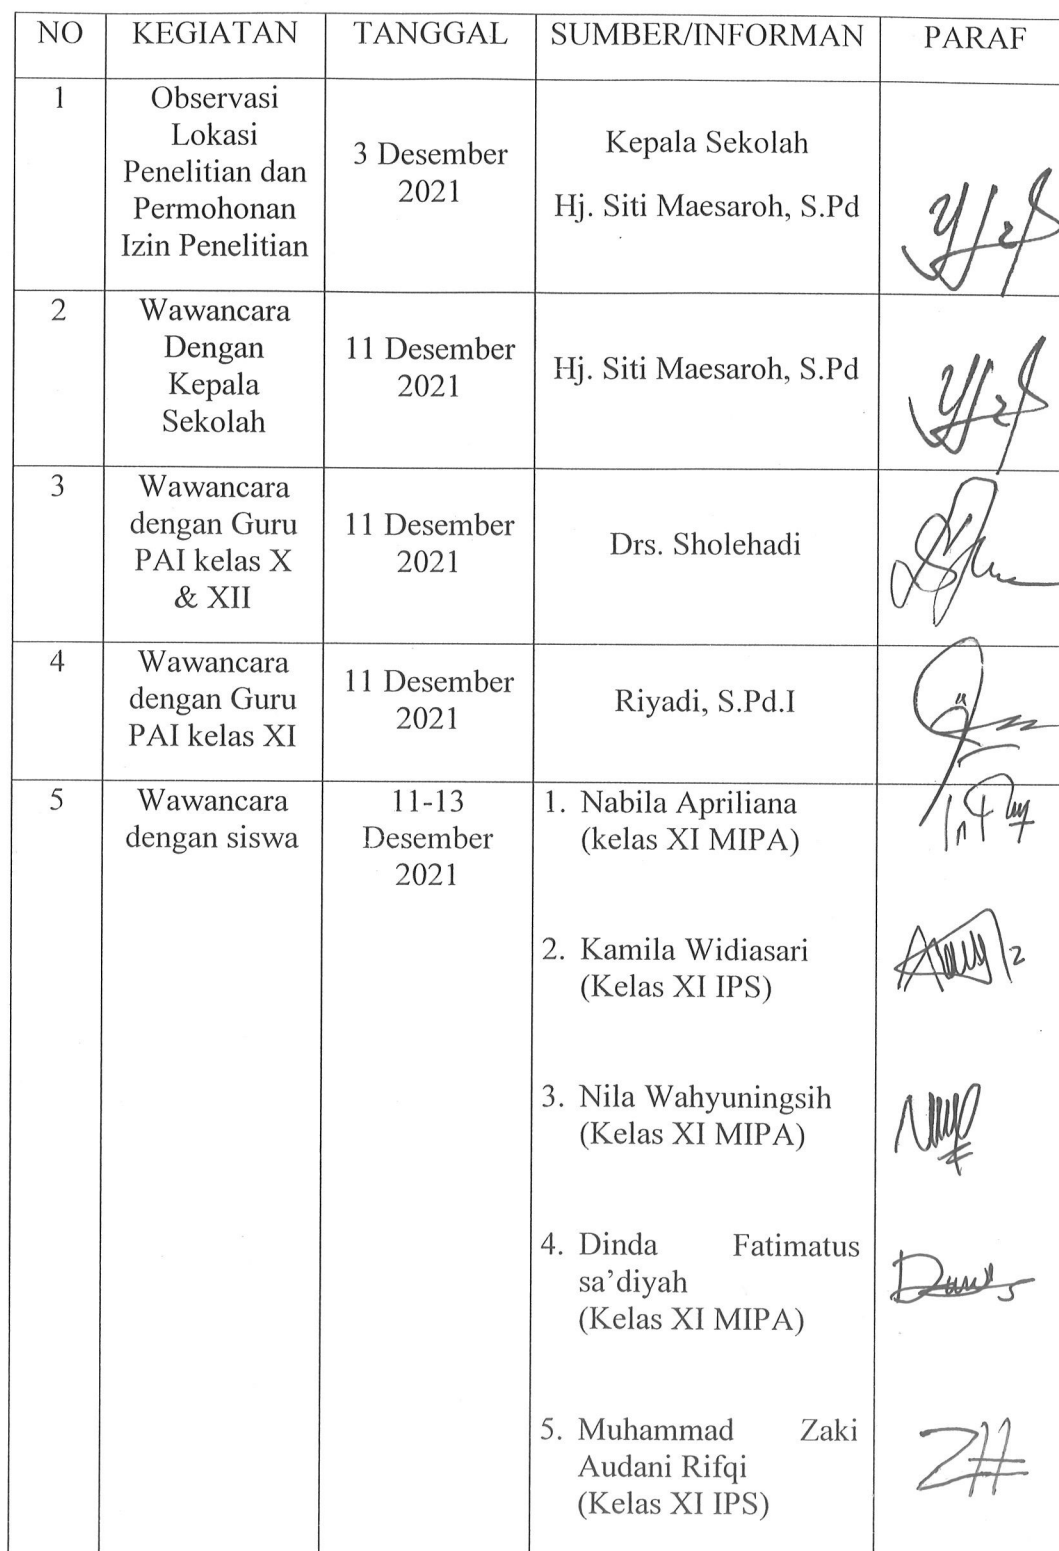 NO KEGIATAN TANGGAL SUMBER/INFORMAN PARAF
1
Observasi
Lokasi
Penelitian dan
Permohonan
Izin Penelitian
3 Desember
2021
Kepala Sekolah
Hj. Siti Maesaroh, S.Pd
2
Wawancara
Dengan
Kepala
Sekolah
11 Desember
2021
Hj. Siti Maesaroh, S.Pd
3
Wawancara
dengan Guru
PAI kelas X
& XII
11 Desember
2021
Drs. Sholehadi
4
Wawancara
dengan Guru
PAI kelas XI
11 Desember
2021
Riyadi, S.Pd.I
5
Wawancara
dengan siswa
11-13
Desember
2021
1. Nabila Apriliana
(kelas XI MIPA)
2. Kamila Widiasari
(Kelas XI IPS)
3. Nila Wahyuningsih
(Kelas XI MIPA)
4. Dinda Fatimatus
sa’diyah
(Kelas XI MIPA)
5. Muhammad Zaki
Audani Rifqi
(Kelas XI IPS)